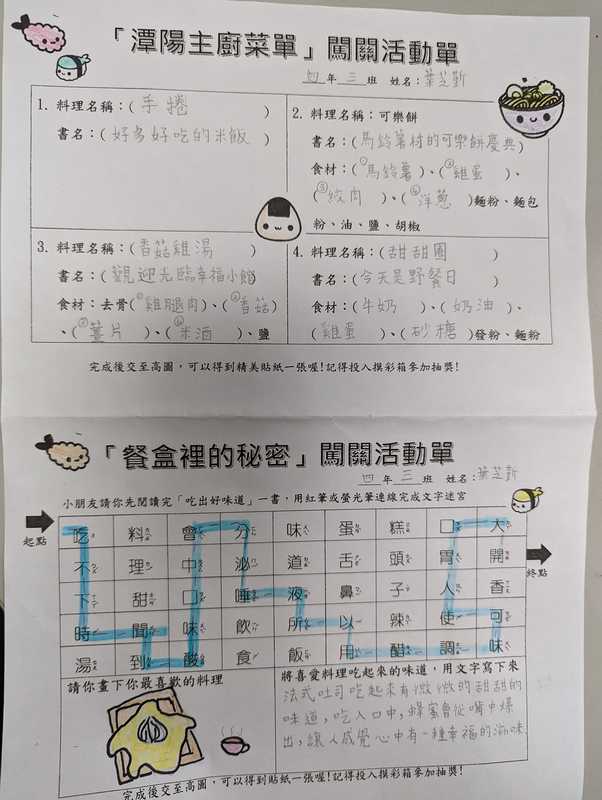 「潭陽主廚菜單」闖關活動單
四 年 三 班 姓名：葉芝新
1. 料理名稱：(手捲)
書名：(好多好吃的米飯)
2. 料理名稱：可樂餅
書名：(馬鈴薯村的可樂餅慶典)
食材：(①馬鈴薯)、(②雞蛋)、
(③絞肉)、(④洋蔥)麵粉、麵包
粉、油、鹽、胡椒
3. 料理名稱：(香菇雞湯)
書名：(觀迎光臨幸福小館)
食材：去骨(①雞腿肉)、(②香菇)
、(③薑片)、(④米酒)、鹽
4. 料理名稱：(甜甜圈)
書名：(今天是野餐日)
食材：(牛奶)、(奶油)、
(雞蛋)、(砂糖)發粉、麵粉
完成後交至高圖，可以得到精美貼紙一張喔!記得投入摸彩箱參加抽獎!
「餐盒裡的秘密」闖關活動單
四 年 三 班 姓名：葉芝新
小朋友請你先閱讀完「吃出好味道」一書，用紅筆或螢光筆連線完成文字迷宮
起點
吃 料 會 分 味 蛋 糕 口 大
不 理 中 泌 道 舌 頭 胃 開
終點
下 甜 口 唾 液 鼻 子 人 香
時 聞 味 飲 所 以 辣 使 可
湯 到 酸 食 飯 用 醋 調 味
請你畫下你最喜歡的料理
將喜愛料理吃起來的味道，用文字寫下來
法式吐司吃起來有微微的甜甜的
味道，吃入口中，蜂蜜會從嘴中爆
出，讓人感覺心中有一種幸福的滋味
完成後交至高圖，可以得到貼紙一張喔!記得投入摸彩箱參加抽獎!